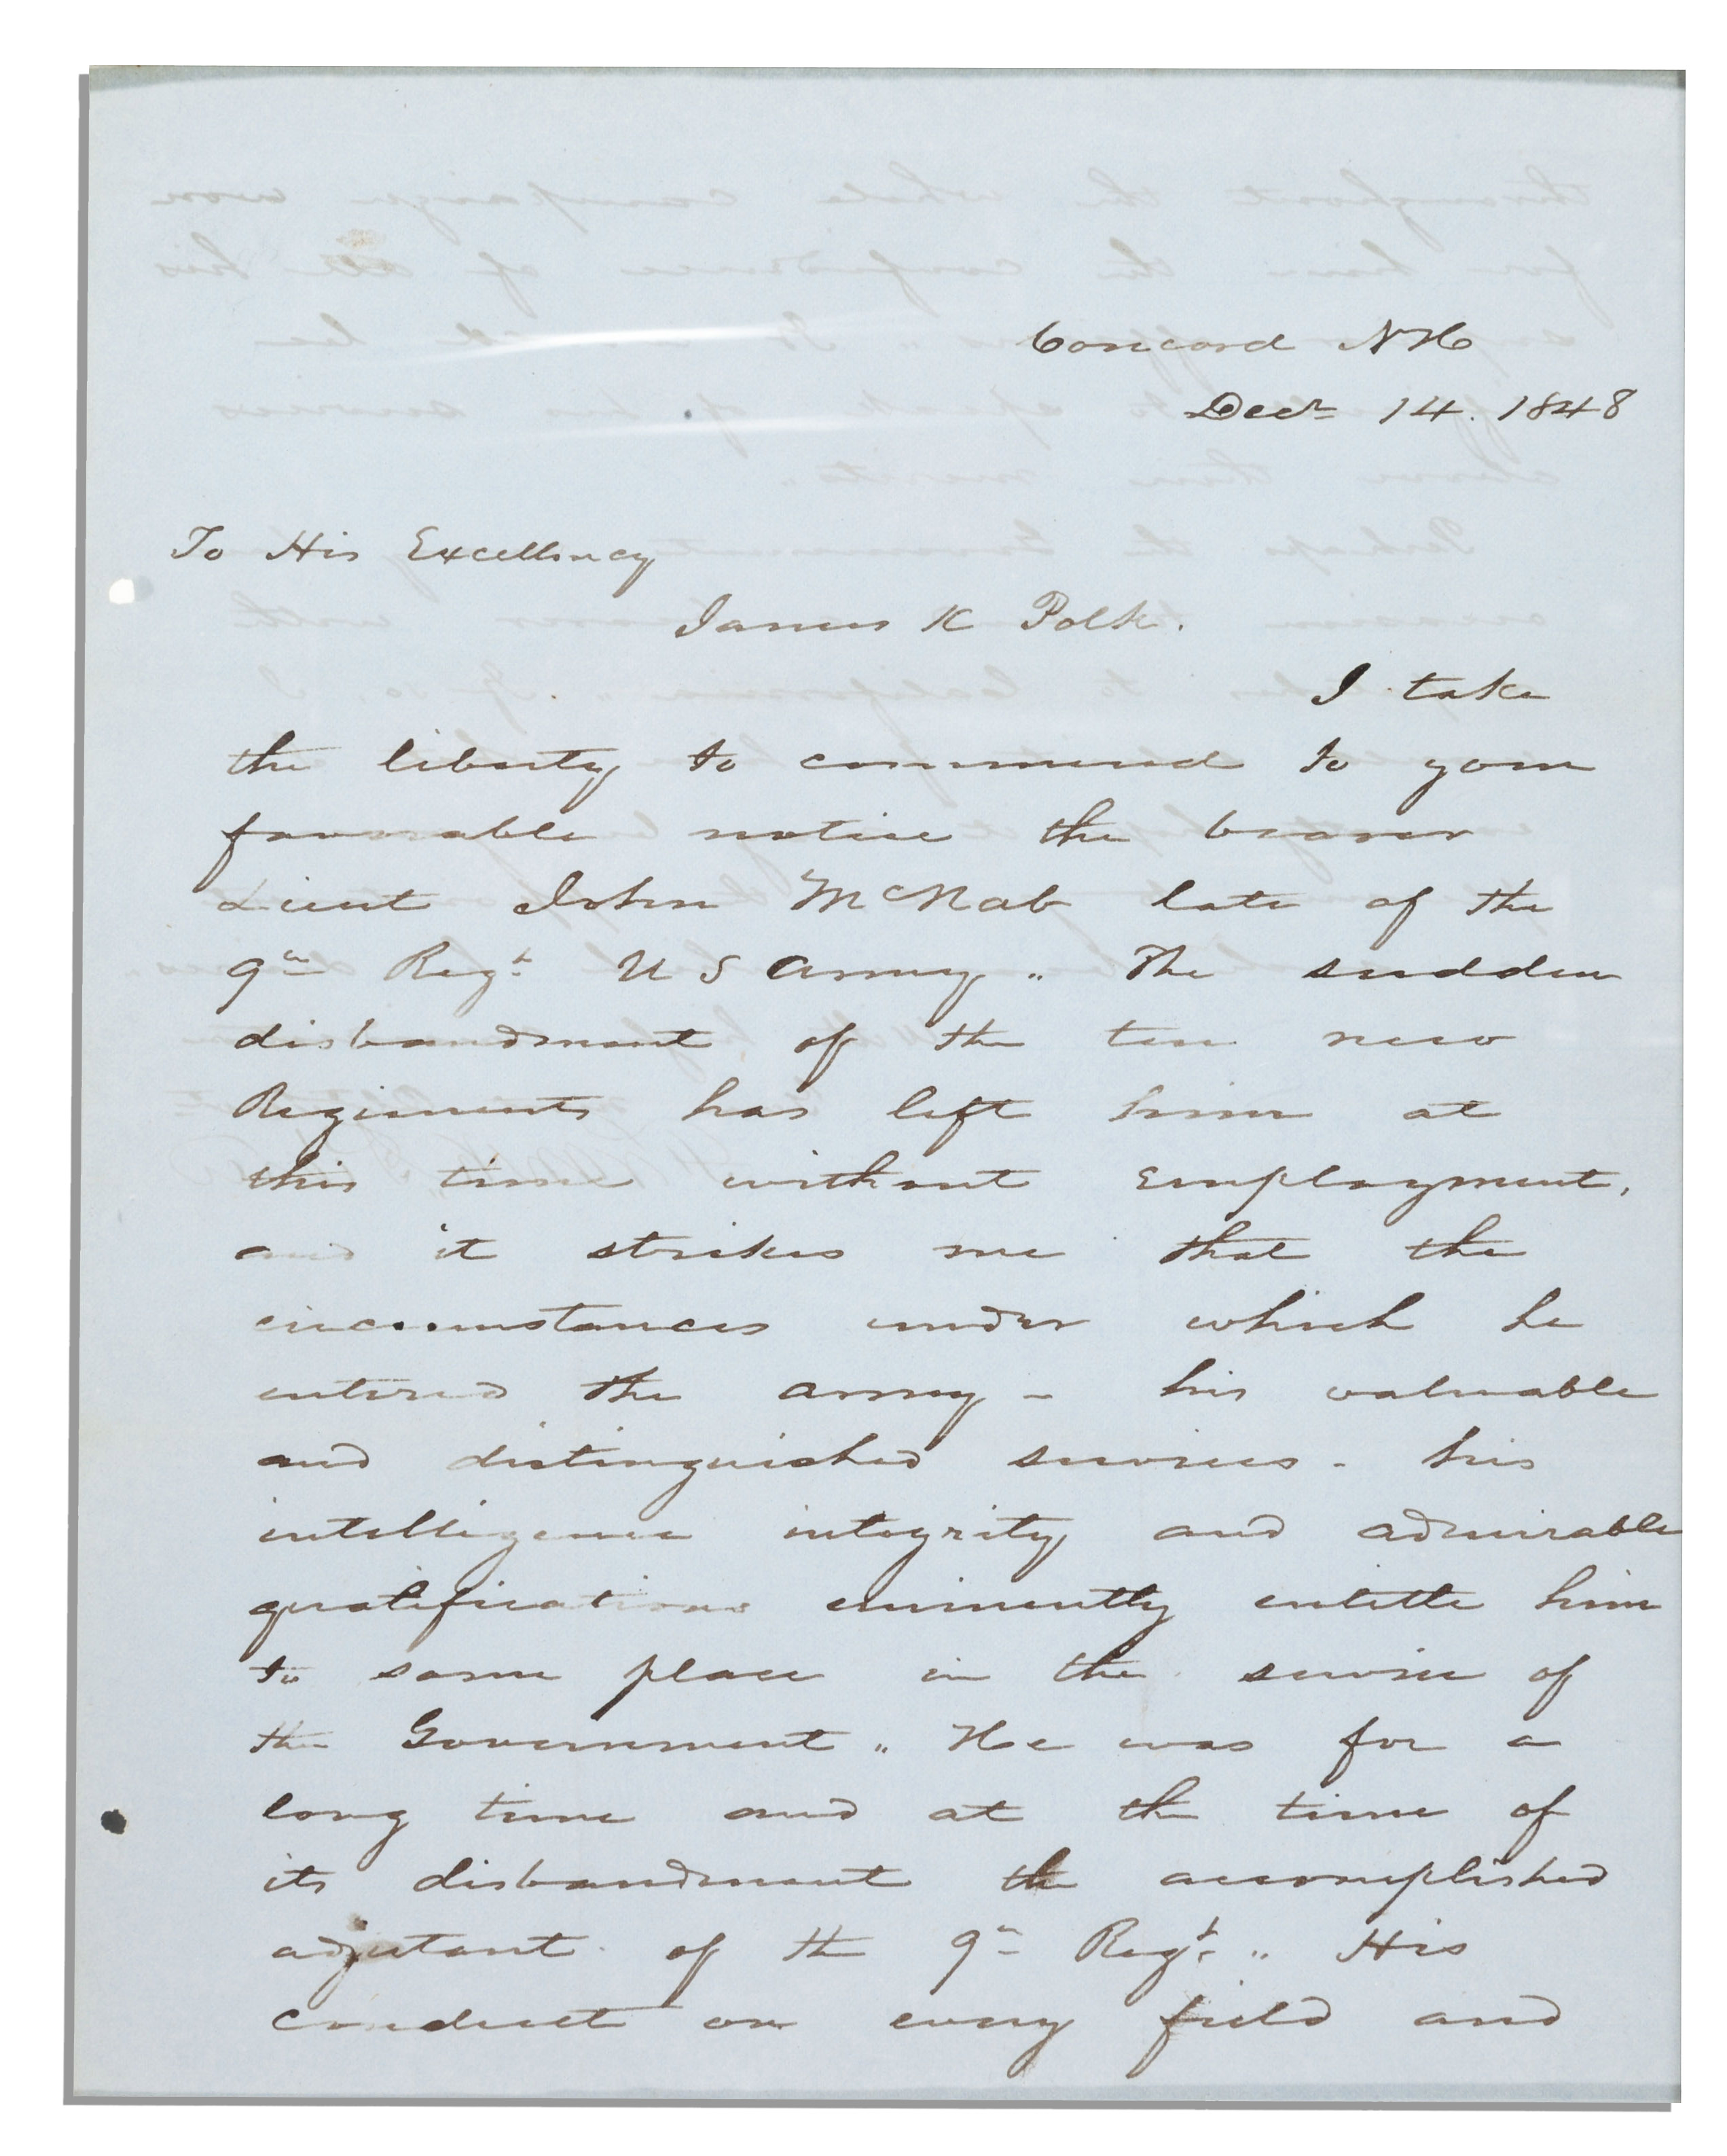 Concord NH
Decr 14. 1848
To His Excellency
James K Polk.
I take
the liberty to commend to your
favorable notice the bearer
Lieut John McNab late of the
9th Regt US Army.. The sudden
disbandment of the ten new
Regiments has left him at
this time without Employment,
and it strikes me that the
circumstances under which he
entered the army - his valuable
and distinguished services - his
intelligence integrity and admirable
qualifications eminently entitle him
to some place in the service of
the Government.. He was for a
long time and at the time of
its disbandment the accomplished
adjutant of the 9th Regt.. His
conduct on every field and